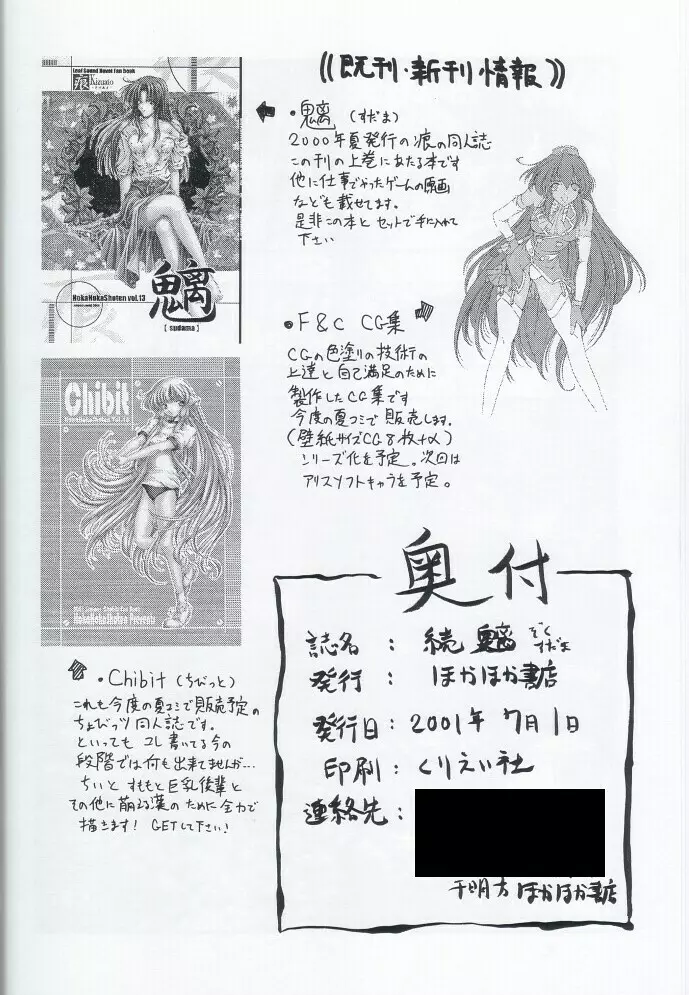 ((既刊・新刊情報))
Leaf Sound Novel Fan book
痕 Kizuato
HokaHokaShoten vol.13
魑
【 sudama 】
・魑 (すだま)
2000年夏発行の痕の同人誌
この刊の上巻にあたる本です
他に仕事でやったゲームの原画
なども載せてます。
是非この本とセットで手に入れて
下さい
・F&C CG集
CGの色塗りの技術の
上達と自己満足のために
製作したCG集です
今度の夏コミで販売します。
(壁紙サイズCG8枚+α)
シリーズ化を予定。次回は
アリスソフトキャラを予定。
Chibit
HokaHokaShoten Presents
・Chibit (ちびっと)
これも今度の夏コミで販売予定の
ちょびっツ同人誌です。
といってもコレ書いてる今の
段階では何も出来てませんが…
ちぃとすももと巨乳後輩と
その他に萌える漢のために全力で
描きます! GETして下さい!
奥付
誌名 : 続 魑 ぞくすだま
発行 : ほかほか書店
発行日 : 2001年 7月1日
印刷 : くりえい社
連絡先 :
千明方 ほかほか書店